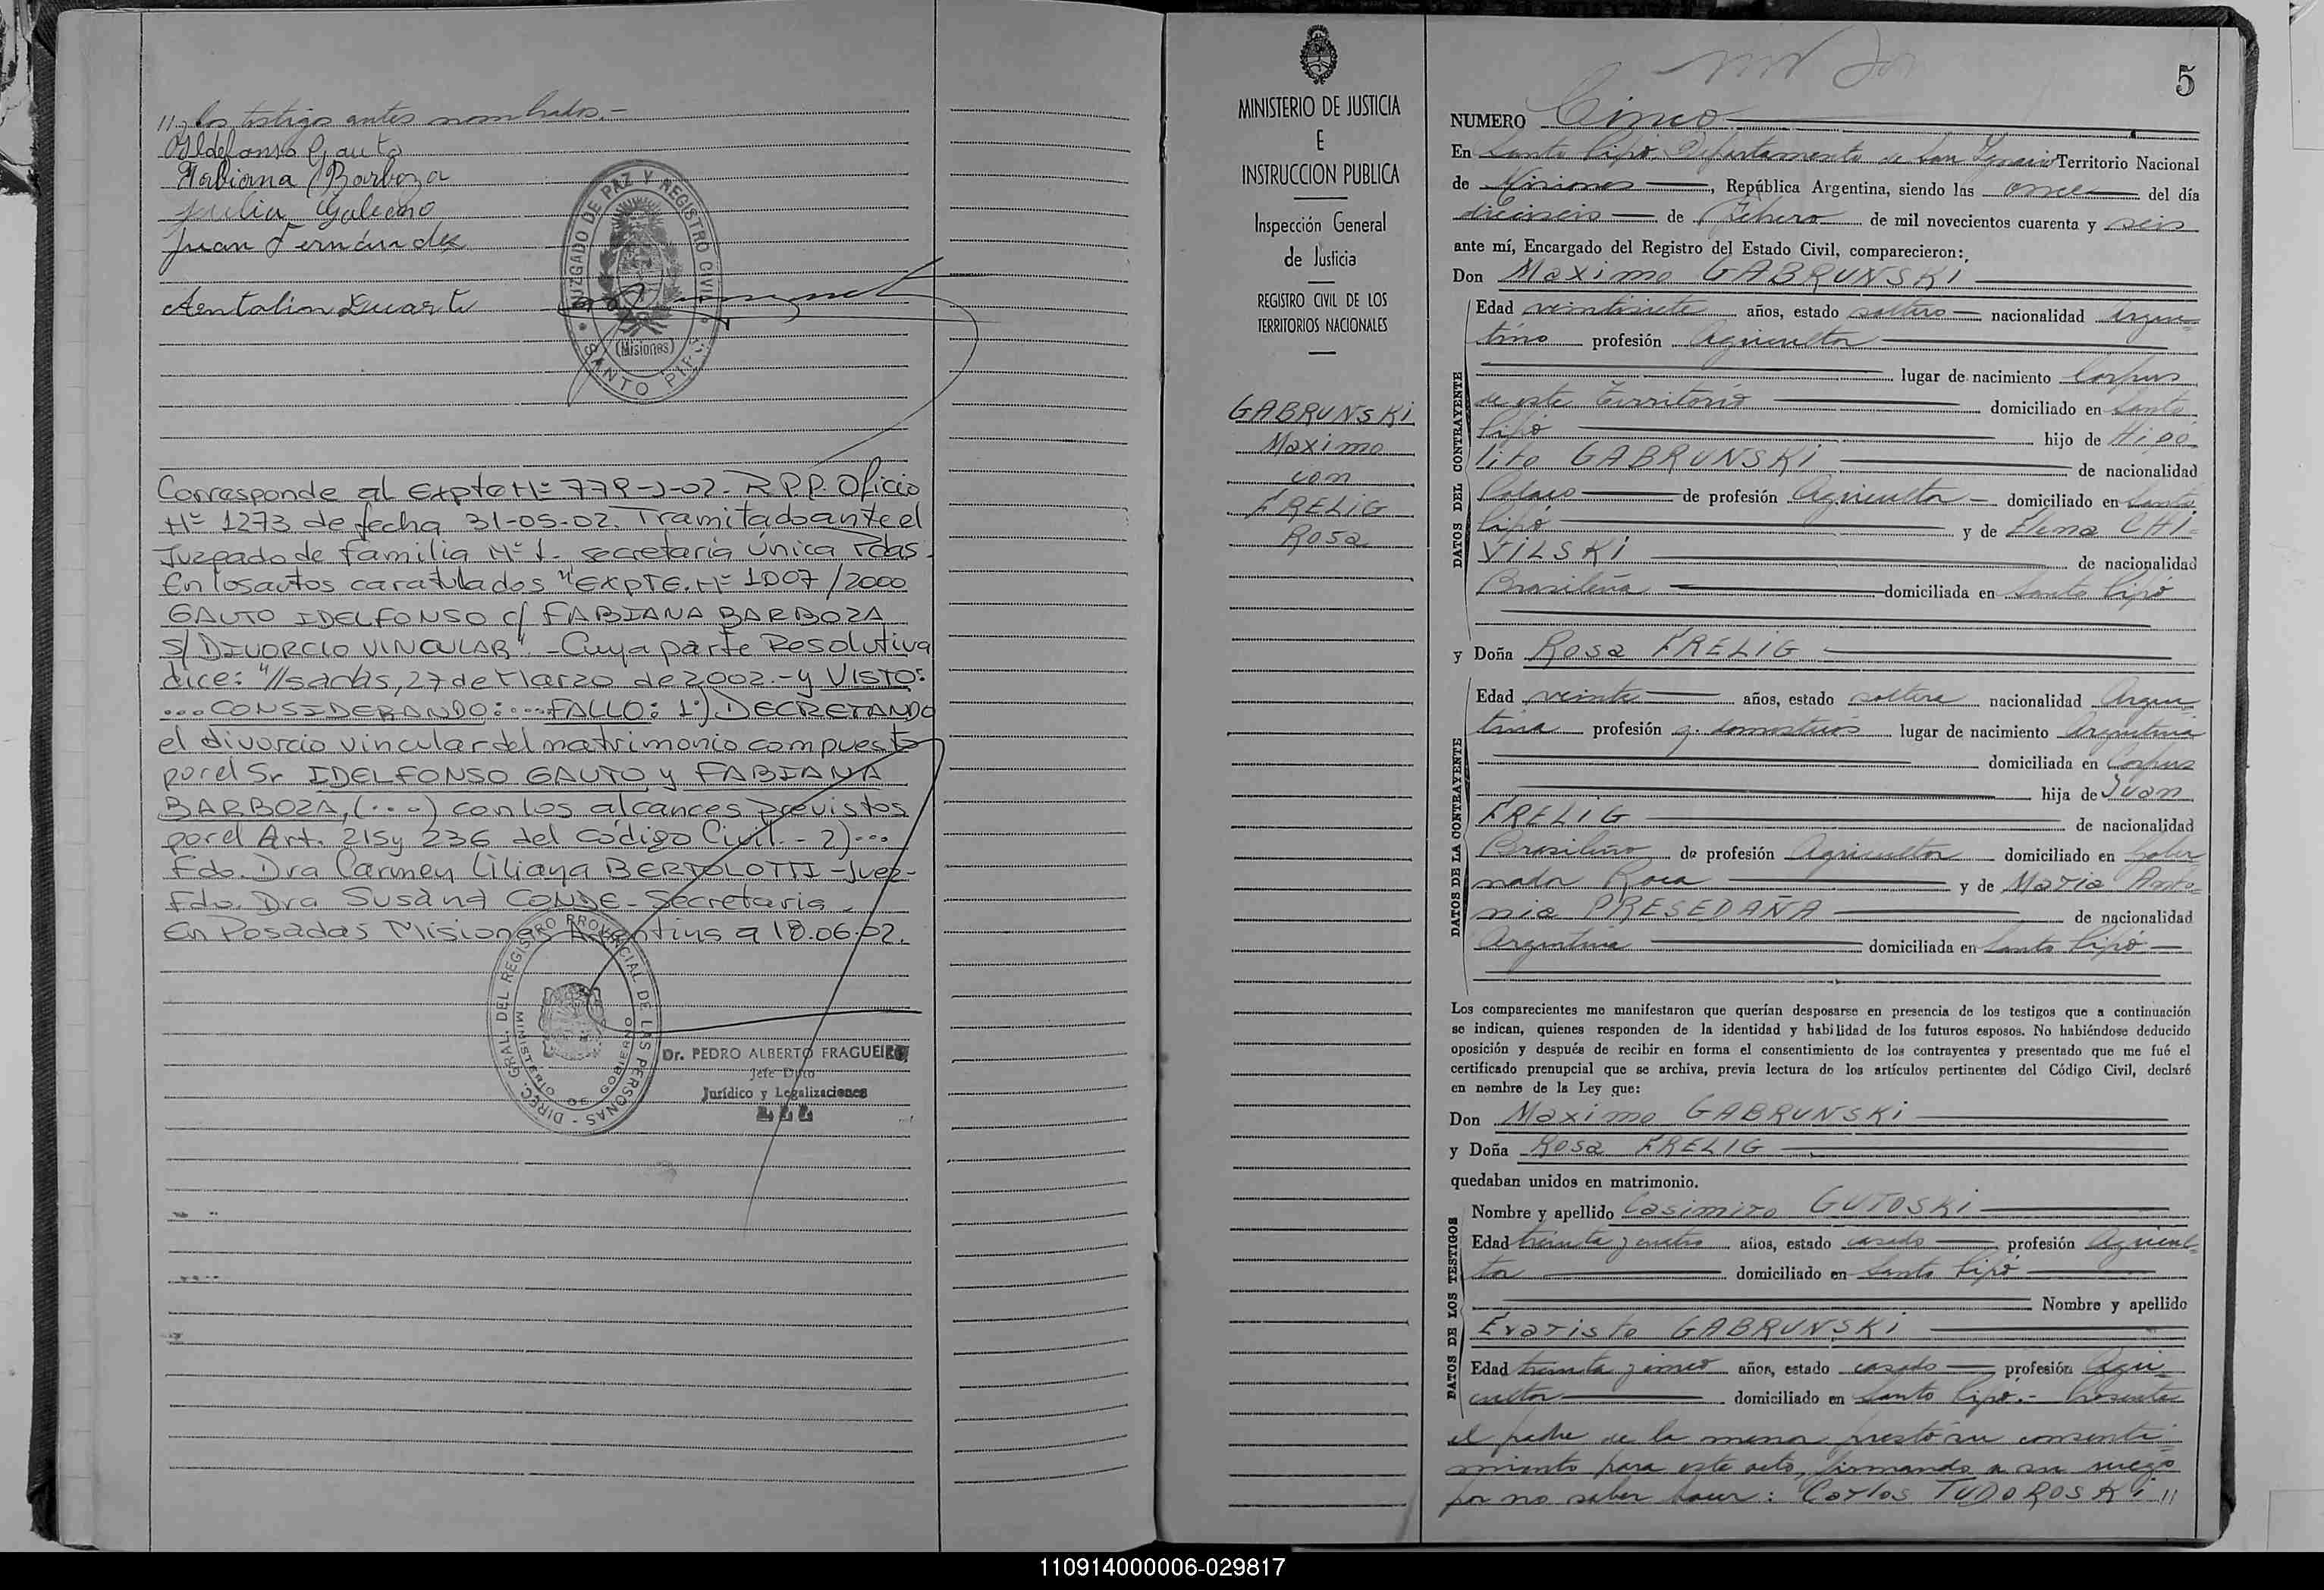 // los testigos antes nombrados.-
Ildefonso Gauto
Fabiana Barboza
Julia Galeano
Juan Fernández
Antolin Duarte
JUZGADO DE PAZ Y REGISTRO CIVIL
(Misiones)
SANTO PIPÓ
Corresponde al Expte Nº 779-J-02. R.P.P. Oficio
Nº 1273 de fecha 31-05-02. Tramitado ante el
Juzgado de familia Nº 1- secretaría Única Pdas-
En los autos caratulados "EXPTE. Nº 1007/2000
GAUTO IDELFONSO c/ FABIANA BARBOZA
S/ DIVORCIO VINCULAR" - Cuya parte Resolutiva
dice: "//sadas, 27 de Marzo de 2002.- y VISTO:
...CONSIDERANDO:...FALLO: 1º) DECRETANDO
el divorcio vincular del matrimonio compuesto
por el Sr IDELFONSO GAUTO y FABIANA
BARBOZA, (...) con los alcances previstos
por el Art. 215 y 236 del Código Civil.- 2)...
Fdo. Dra Carmen Liliana BERTOLOTTI - Juez-
Fdo. Dra Susana CONDE - Secretaria.
En Posadas Misiones Argentina a 18.06.02.
DIREC. GRAL. DEL REGISTRO PROVINCIAL DE LAS PERSONAS -
MINISTERIO DE GOBIERNO
Dr. PEDRO ALBERTO FRAGUEIRO
Jefe Dpto
Jurídico y Legalizaciones
MINISTERIO DE JUSTICIA
E
INSTRUCCION PUBLICA
Inspección General
de Justicia
REGISTRO CIVIL DE LOS
TERRITORIOS NACIONALES
GABRUNSKI
Maximo
con
FRELIG
Rosa
5
NUMERO Cinco
En Santo Pipó, Departamento de San Ignacio Territorio Nacional
de Misiones, República Argentina, siendo las once del día
dieciseis de Febrero de mil novecientos cuarenta y seis
ante mí, Encargado del Registro del Estado Civil, comparecieron:
Don Maximo GABRUNSKI
DATOS DEL CONTRAYENTE
Edad veintisiete años, estado soltero nacionalidad Argen-
tino profesión Agricultor
lugar de nacimiento Corpus
de este Territorio domiciliado en Santo
Pipó hijo de Hipó-
lito GABRUNSKI de nacionalidad
Polaco de profesión Agricultor domiciliado en Santo
Pipó y de Elena CHI-
VILSKI de nacionalidad
Brasileña domiciliada en Santo Pipó
y Doña Rosa FRELIG
DATOS DE LA CONTRAYENTE
Edad veinte años, estado soltera nacionalidad Argen-
tina profesión q. domésticos lugar de nacimiento Argentina
domiciliada en Corpus
hija de Juan
FRELIG de nacionalidad
Brasileño de profesión Agricultor domiciliado en Gober
nador Roca y de Maria Anto-
nia PRESEDAÑA de nacionalidad
Argentina domiciliada en Santo Pipó
Los comparecientes me manifestaron que querían desposarse en presencia de los testigos que a continuación
se indican, quienes responden de la identidad y habilidad de los futuros esposos. No habiéndose deducido
oposición y después de recibir en forma el consentimiento de los contrayentes y presentado que me fué el
certificado prenupcial que se archiva, previa lectura de los artículos pertinentes del Código Civil, declaré
en nombre de la Ley que:
Don Maximo GABRUNSKI
y Doña Rosa FRELIG
quedaban unidos en matrimonio.
DATOS DE LOS TESTIGOS
Nombre y apellido Casimiro GUTOSKI
Edad treinta y cuatro años, estado casado profesión Agricul-
tor domiciliado en Santo Pipó
Nombre y apellido
Evaristo GABRUNSKI
Edad treinta y cinco años, estado casado profesión Agri-
cultor domiciliado en Santo Pipó.- Presente
el padre de la menor prestó su consenti-
miento para este acto, firmando a su ruego
por no saber hacer: Carlos TUDOROSKI //
110914000006-029817